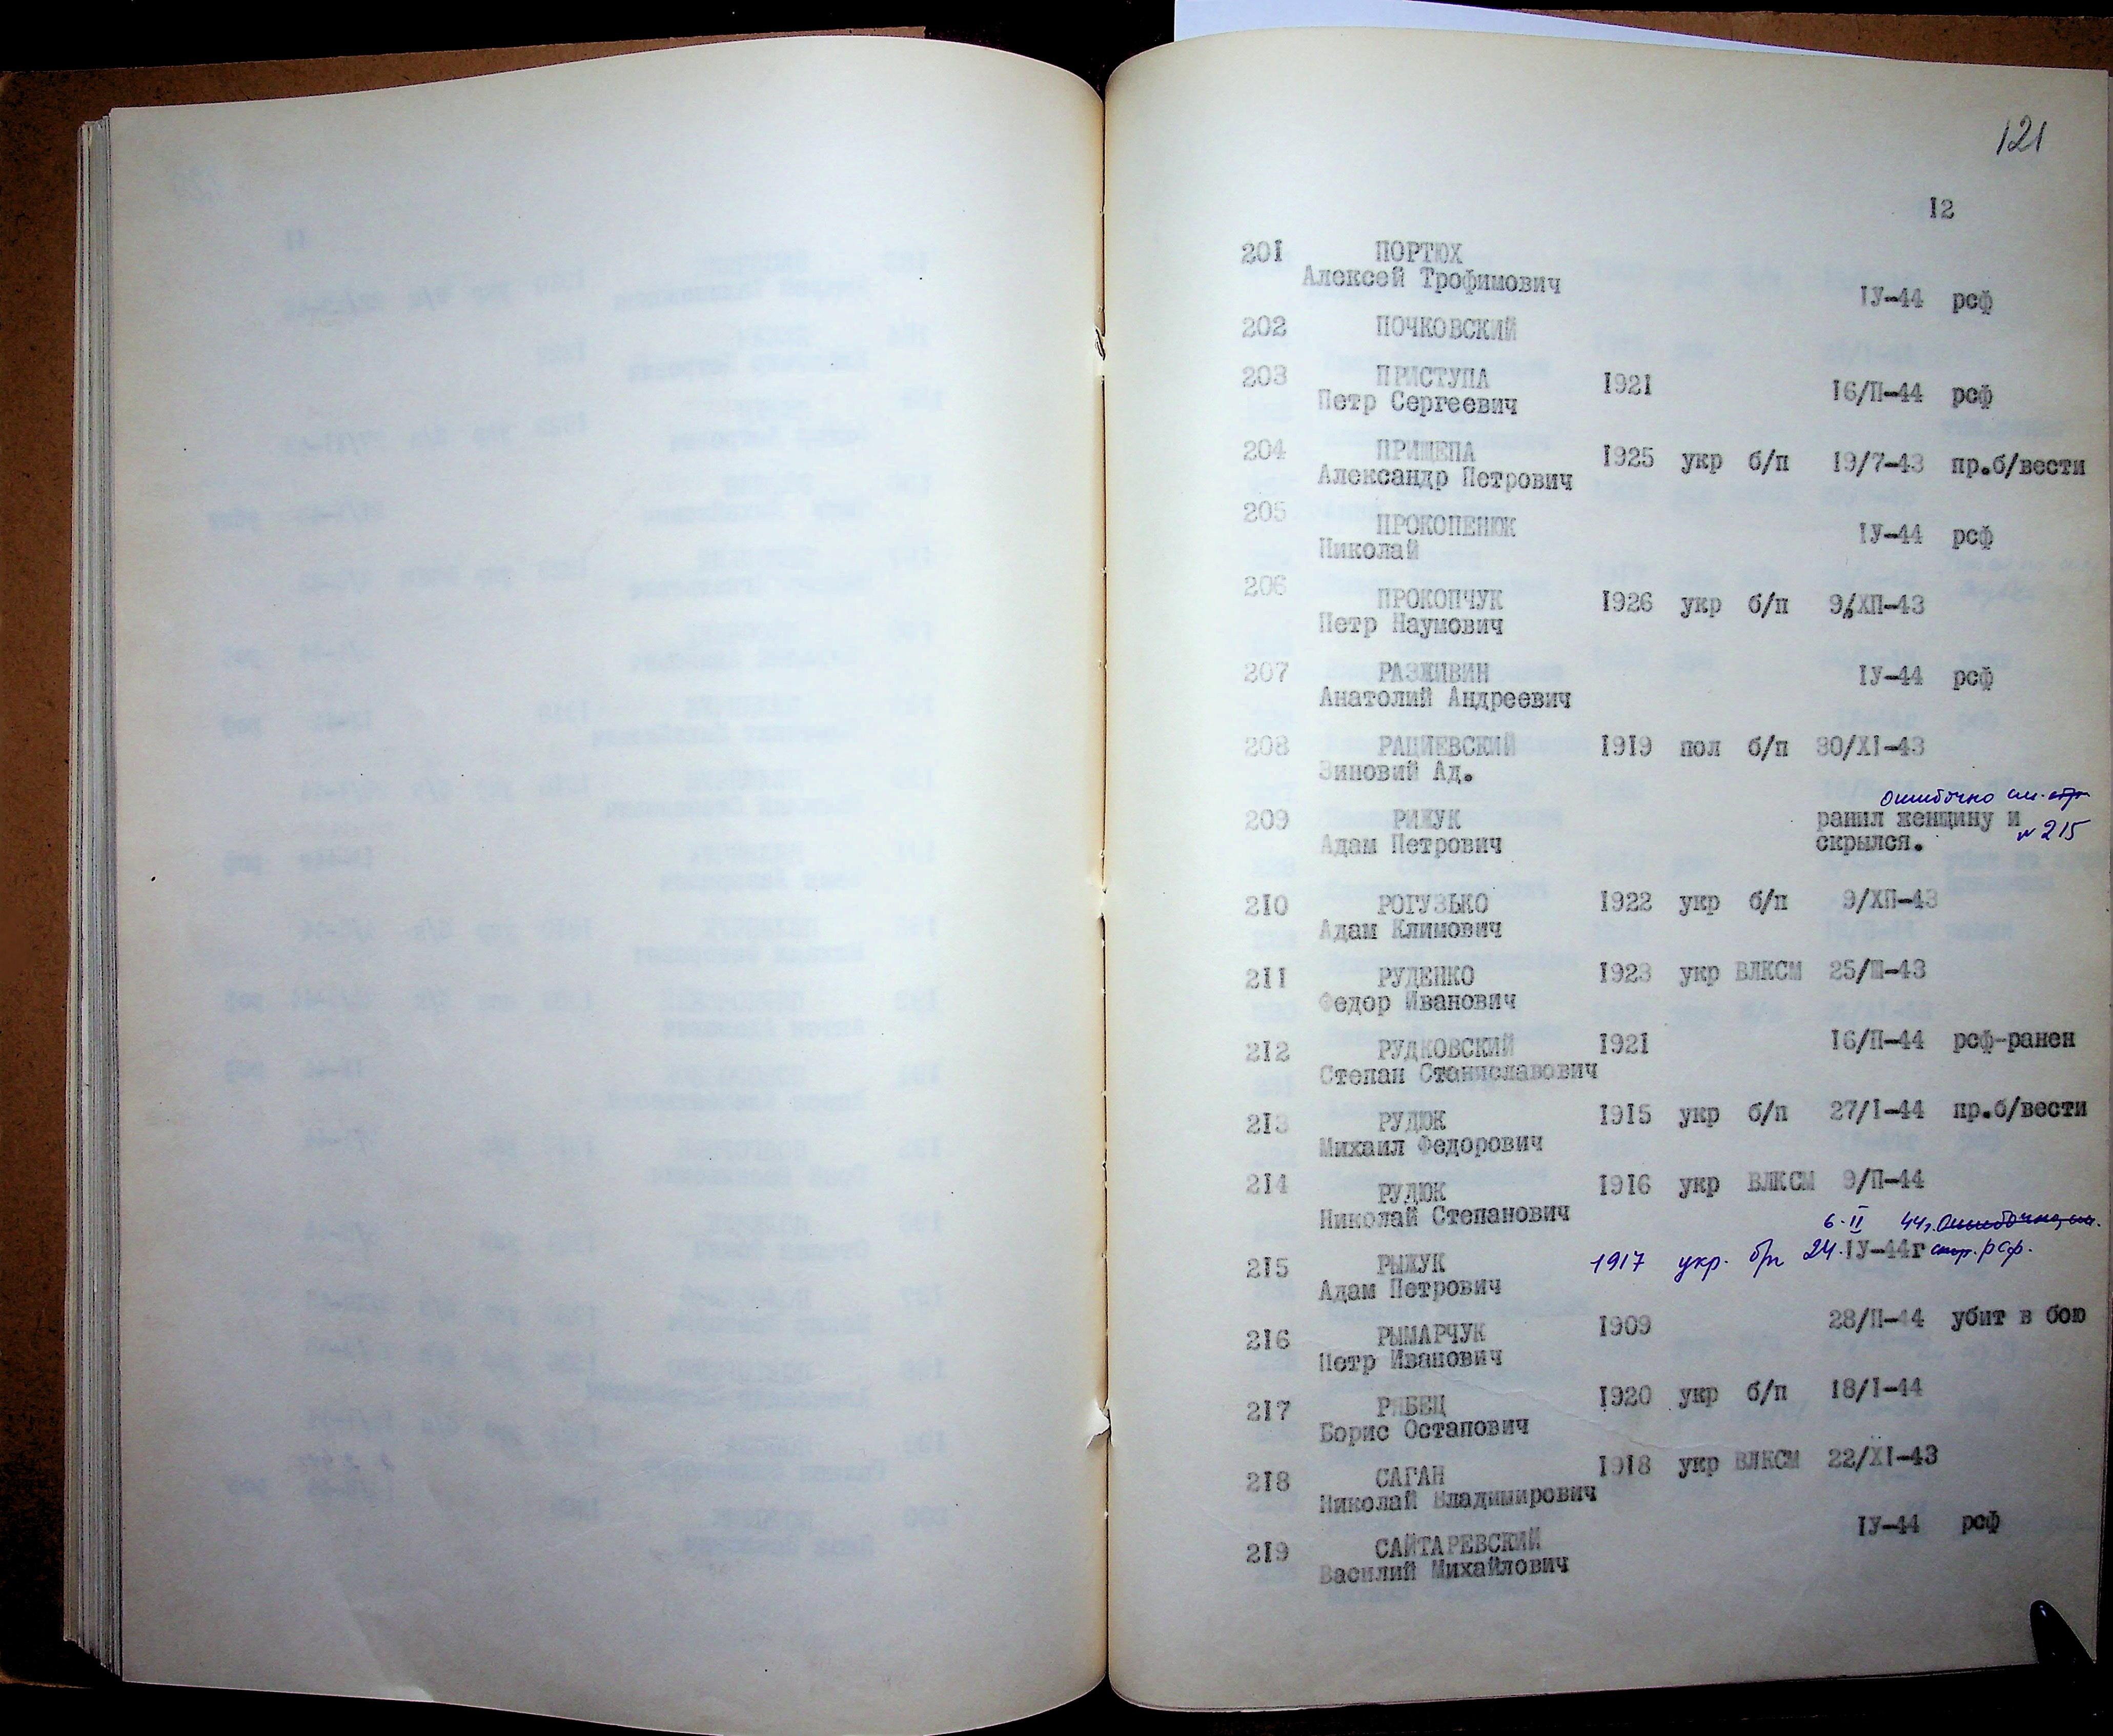 121
I2
20I ПОРТЮХ
Алексей Трофимович IУ-44 рсф
202 ПОЧКОВСКИЙ
203 ПРИСТУПА I92I I6/П-44 рсф
Петр Сергеевич
204 ПРИЩЕПА I925 укр б/п I9/7-43 пр.б/вести
Александр Петрович
205 ПРОКОПЕНЮК IУ-44 рсф
Николай
206 ПРОКОПЧУК I926 укр б/п 9/ХП-43
Петр Наумович
207 РАЗЖИВИН IУ-44 рсф
Анатолий Андреевич
208 РАЦИЕВСКИЙ I9I9 пол б/п 30/ХI-43
Зиновий Ад.
Ошибочно см. стр
209 РИЖУК ранил женщину и
Адам Петрович скрылся. № 215
2I0 РОГУЗЬКО I922 укр б/п 9/ХП-43
Адам Климович
2II РУДЕНКО I923 укр ВЛКСМ 25/Ш-43
Федор Иванович
2I2 РУДКОВСКИЙ I92I I6/П-44 рсф-ранен
Степан Станиславович
2I3 РУДЮК I9I5 укр б/п 27/I-44 пр.б/вести
Михаил Федорович
2I4 РУДЮК I9I6 укр ВЛКСМ 9/П-44
Николай Степанович
6.II 44г. Ошибочно, см.
2I5 РЫЖУК 1917 укр. б/п 24.IУ-44г стр. рсф.
Адам Петрович
2I6 РЫМАРЧУК I909 28/П-44 убит в бою
Петр Иванович
2I7 РЯБЕЦ I920 укр б/п I8/I-44
Борис Остапович
2I8 САГАН I9I8 укр ВЛКСМ 22/ХI-43
Николай Владимирович
2I9 САЙТАРЕВСКИЙ IУ-44 рсф
Василий Михайлович